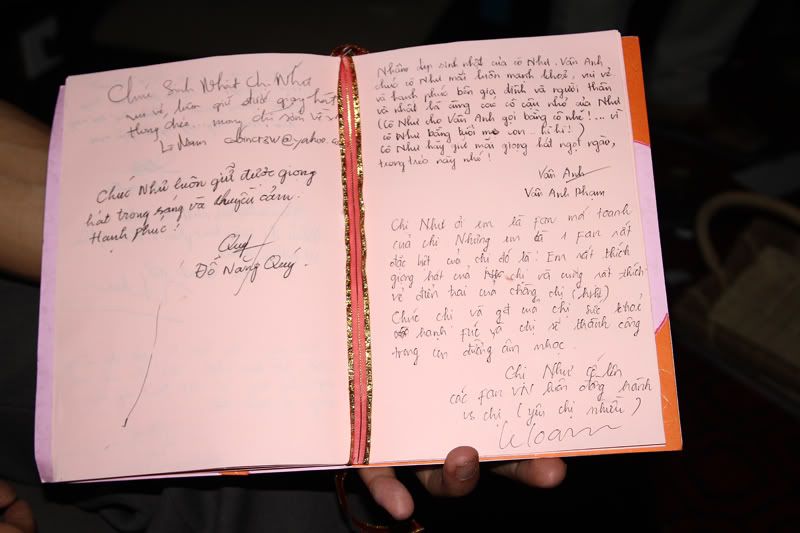 Chúc Sinh Nhật Chị Như
vui vẻ, luôn giữ được giọng hát
thông điệp... mong chị sớm về
Lê Nam @yahoo.c
Chúc Như luôn giữ được giọng
hát trong sáng và truyền cảm.
Hạnh phúc!
Quý
Đỗ Năng Quý.
Nhằm dịp sinh nhật của cô Như. Vân Anh,
chúc cô Như mãi luôn mạnh khoẻ, vui vẻ
và hạnh phúc bên gia đình và người thân
và nhất là cùng các cô cậu nhỏ của Như
(Cô Như cho Vân Anh gọi bằng cô nhé!... vì
cô Như bằng tuổi mẹ con.. hì hì!)
Cô Như hãy giữ mãi giọng hát ngọt ngào,
trong trẻo này nhé!
Vân Anh
Vân Anh Phạm
Chị Như ơi em là fan mới toanh
của chị Nhưng em là 1 fan rất
đặc biệt của chị đó là: Em rất thích
giọng hát của chị và cũng rất thích
vẻ điển trai của chồng chị (hihi)
Chúc chị và gđ của chị sức khoẻ
hạnh fúc và chị sẽ thành công
trong con đường âm nhạc.
Chị Như cố lên
các fan VN luôn đồng hành
vs chị (yêu chị nhiều)